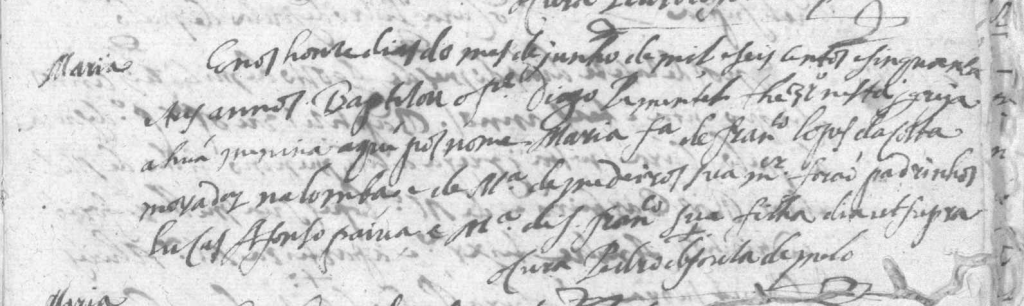 Maria
Em os honze dias do mes de junho de mil e seis centos e sinquoenta
e tres annos Baptisou o p.e Diogo Pimentel thez.ro nesta Igreja
a huã minina a que pos nome Maria f.a de fran.co lopes da costa
morador na lomba e de M.a de medeiros sua m.er forão padrinhos
lucas Afonso paiva e M.a de S. fran.co sua filha dia et supra
O cura Pedro de melo
Maria